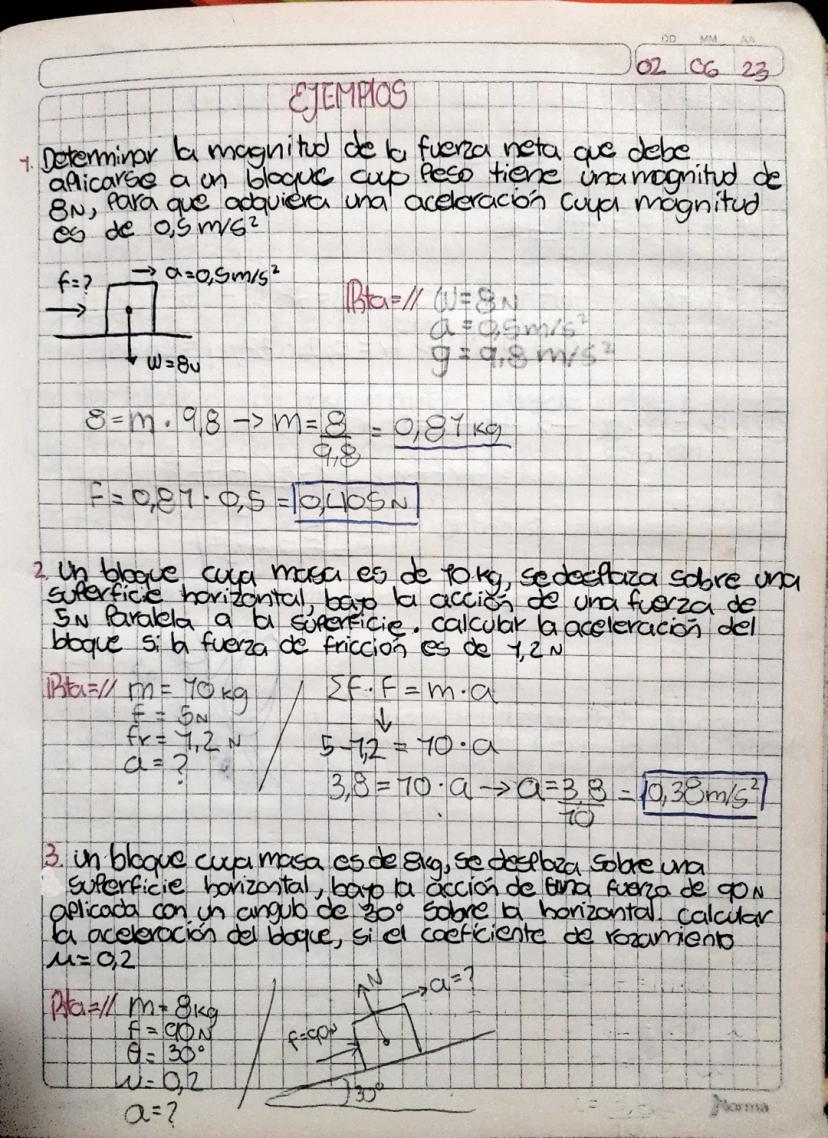 DD MM AA
02 06 23
EJEMPlOS
1. Determinar la magnitud de la fuerza neta que debe
aplicarse a un bloque cuyo Peso tiene una magnitud de
8N, Para que adquiera una aceleración cuya magnitud
es de 0,5 m/s²
f=? → a=0,5m/s²
W=8N
Rta=// W=8N
a=0,5m/s²
g=9,8 m/s²
8=m·9,8 → m=8/9,8 = 0,81 kg
F=0,81·0,5=0,405N
2. Un bloque cuya masa es de 10kg, se desplaza sobre una
superficie horizontal, bajo la acción de una fuerza de
5N Paralela a la superficie. calcular la aceleración del
bloque si la fuerza de friccion es de 1,2N
Rta=// m=10kg
f=5N
fr=1,2 N
a=?
Σf·F=m·a
↓
5-1,2=10·a
3,8=10·a → a=3,8/10 = 0,38m/s²
3. un bloque cuya masa es de 8kg, se desplaza sobre una
superficie horizontal, bajo la acción de una fuerza de 90N
aplicada con un angulo de 30° sobre la horizontal. calcular
la aceleración del bloque, si el coeficiente de rozamiento
μ=0,2
Rta=// m=8kg
f=90N
θ=30°
μ=0,2
a=?
N
→a=?
f=90N
30°
Norma